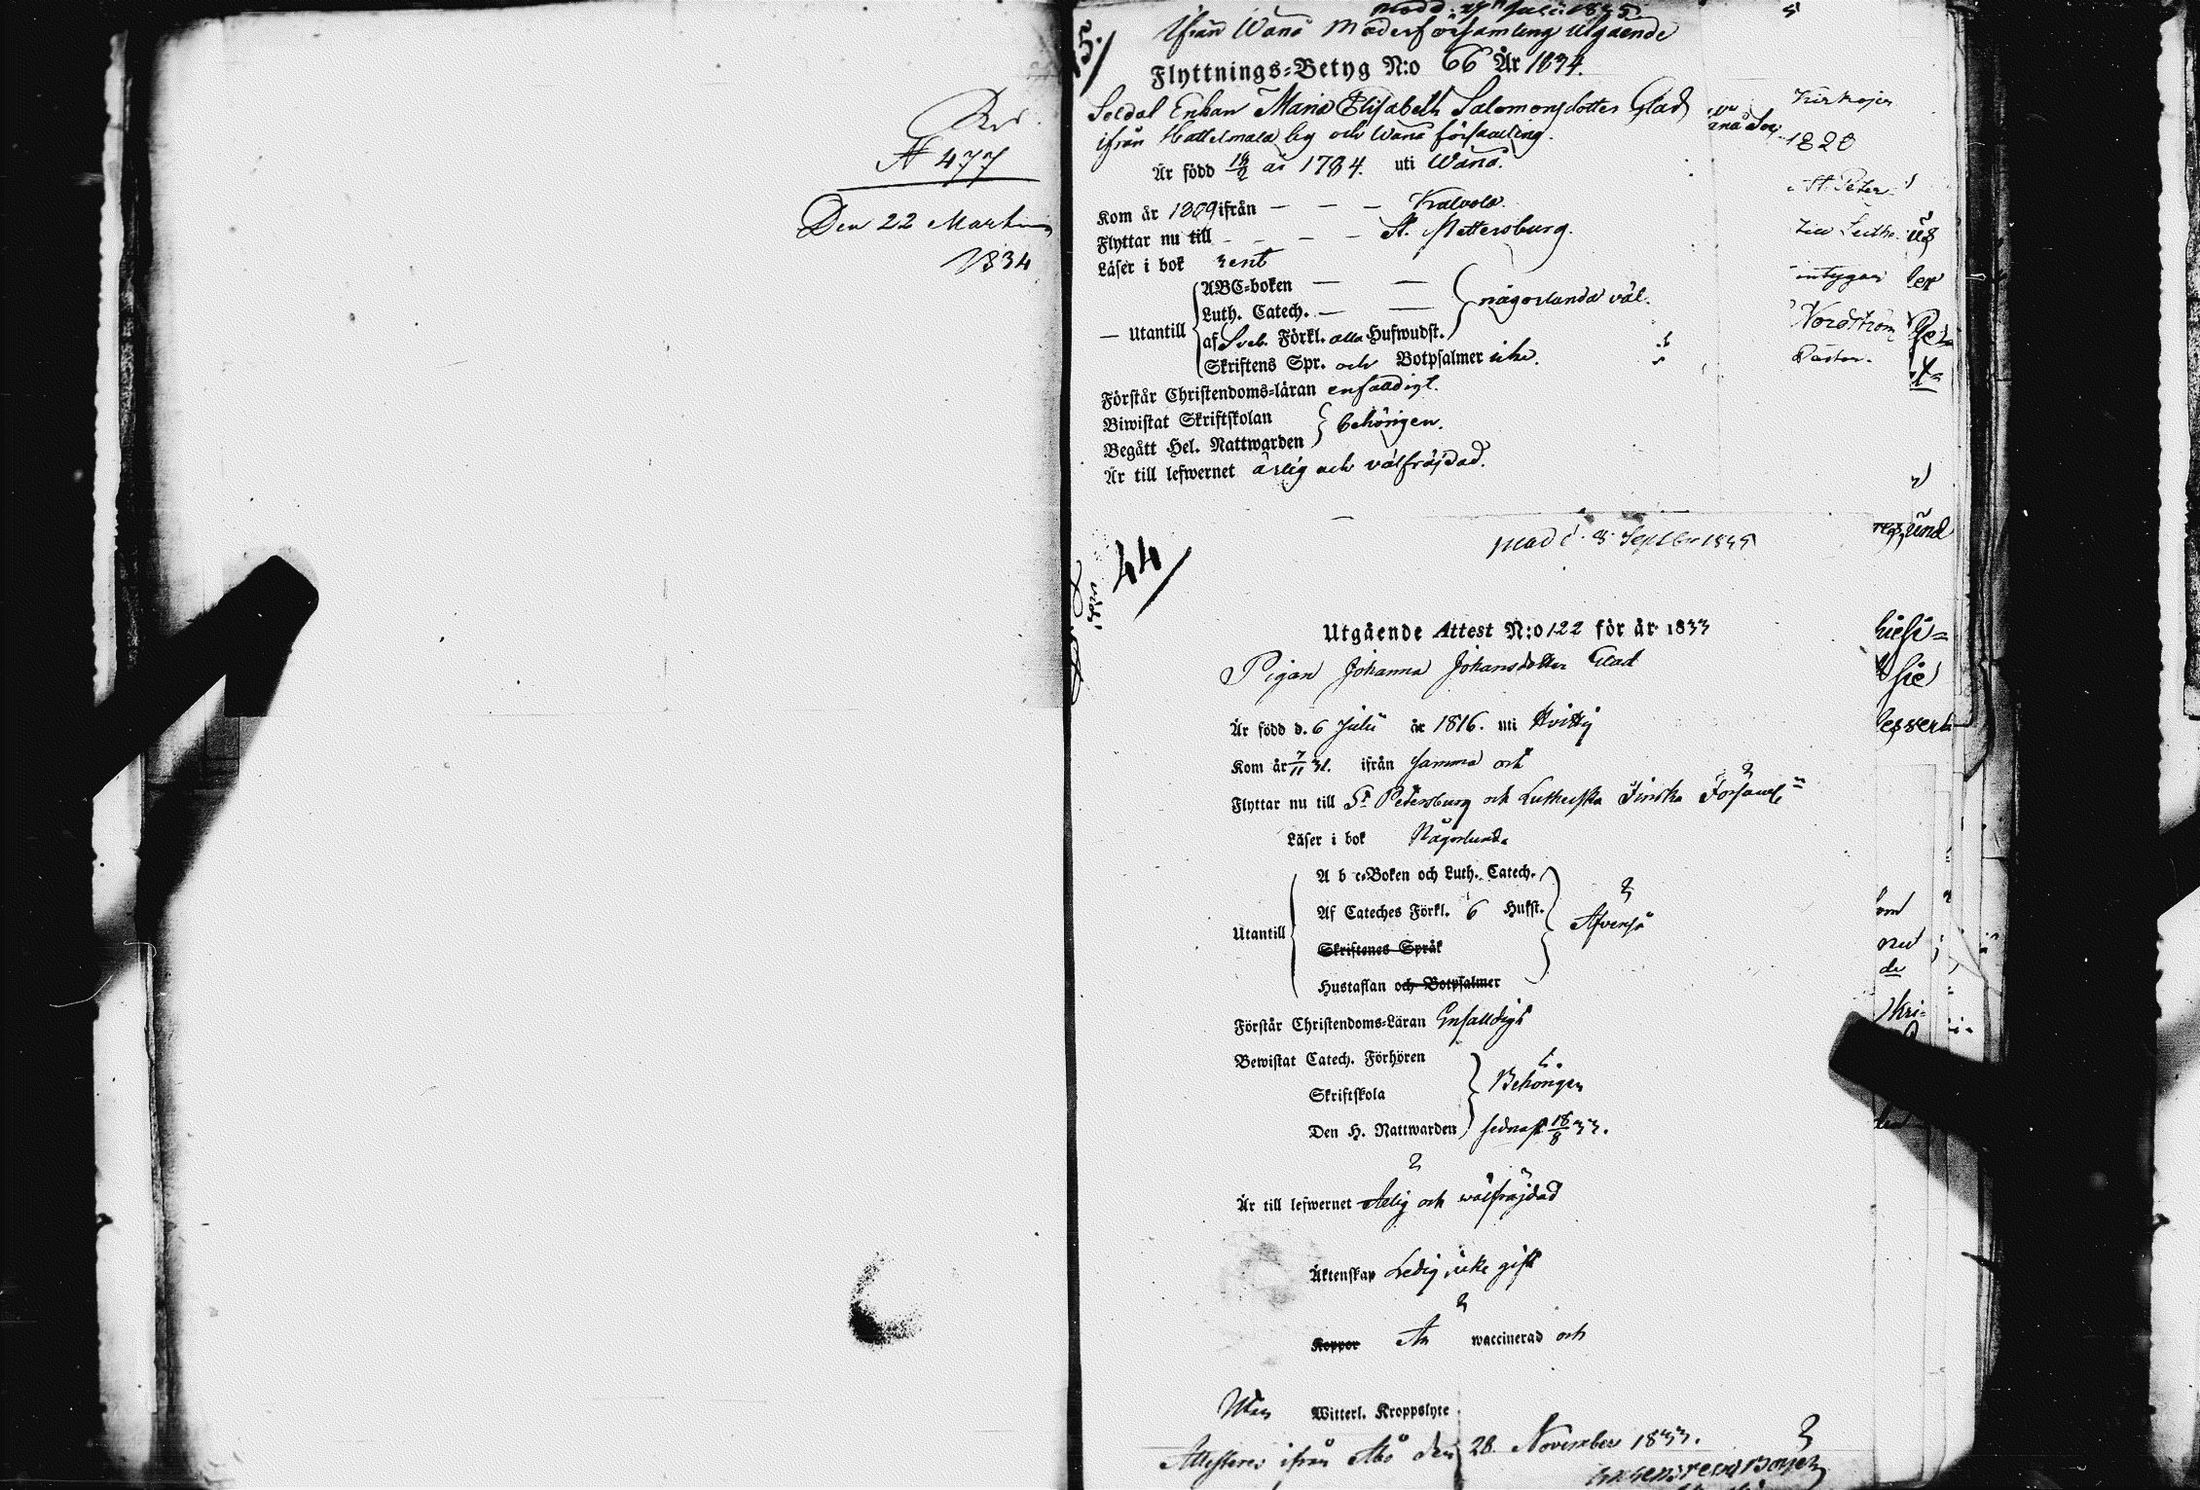 N 477
Den 22 Martius
1834
5.
Ifrån Wånå Moderförsamling utgående
Flyttnings-Betyg N:o 66 År 1834.
Soldat Enkan Maria Elisabeth Salomonsdotter Glad
ifrån Hattelmala by och Wånå församling.
Är född 16/2 år 1784. uti Wånå.
Kom år 1809 ifrån — — — Kalvola.
Flyttar nu till — — — — St. Pettersburg.
Läser i bok rent
ABC-boken — —
Luth. Catech. — — någorlunda väl.
— Utantill
af Sveb. Förkl. alla Hufwudst.
Skriftens Spr. och Botpsalmer icke.
Förstår Christendoms-läran enfaldigt.
Biwistat Skriftskolan
Begått Hel. Nattwarden behörigen.
Är till lefwernet ärlig och välfräjdad.
1820
St. Peter
intygar
Nordström
Pastor.
44
Utgående Attest N:o 122 för år 1833
Pigan Johanna Johansdotter Glad
Är född d. 6 Julii år 1816. uti Hvittis
Kom år 7/11 31. ifrån samma och
Flyttar nu till St Petersburg och Lutherska Finska Församl
Läser i bok Någorlunda
A b c-Boken och Luth. Catech.
Af Cateches Förkl. 6 Hufst.
Utantill Äfvenså
Skriftenes Språk
Hustaflan och Botpsalmer
Förstår Christendoms-Läran Enfalldigt
Bewistat Catech. Förhören
Skriftskola Behörigen
Den H. Nattwarden sednast 18/8 33.
Är till lefwernet Ärlig och wälfräjdad
Äktenskap Ledig icke gift
Koppor Är waccinerad och
Utan Witterl. Kroppslyte
Attesteras ifrån Åbo den 28 November 1833.